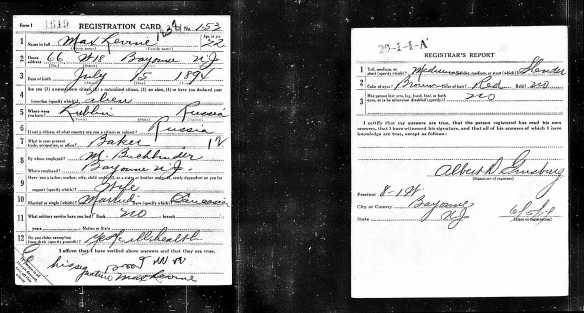 Form 1
1519
REGISTRATION CARD
No. 153
1 Name in full Max Levine Age, in yrs. 22
2 Home address 66 W 18 Bayonne N.J.
3 Date of birth July 15 1894
4 Are you (1) a natural-born citizen, (2) a naturalized citizen, (3) an alien, (4) or have you declared your intention (specify which)? alien
5 Where were you born? Lublin Russia
6 If not a citizen, of what country are you a citizen or subject? Russia
7 What is your present trade, occupation, or office? Baker
8 By whom employed? M.
Where employed? Bayonne N.J.
9 Have you a father, mother, wife, child under 12, or a sister or brother under 12, solely dependent on you for support (specify which)? Wife
10 Married or single (which)? Married Race (specify which)? Caucasian
11 What military service have you had? Rank no branch
years Nation or State
12 Do you claim exemption from draft (specify grounds)? health
I affirm that I have verified above answers and that they are true.
Max Levine
29-1-1-A
REGISTRAR'S REPORT
1 Tall, medium, or short (specify which)? Medium Slender, medium, or stout (which)? Slender
2 Color of eyes? Brown Color of hair? Red Bald? no
3 Has person lost arm, leg, hand, foot, or both eyes, or is he otherwise disabled (specify)? no
I certify that my answers are true, that the person registered has read his own answers, that I have witnessed his signature, and that all of his answers of which I have knowledge are true, except as follows:
Albert D. Ginsburg
(Signature of registrar)
Precinct 8-1st
City or County Bayonne
State N.J.
(Date of registration)